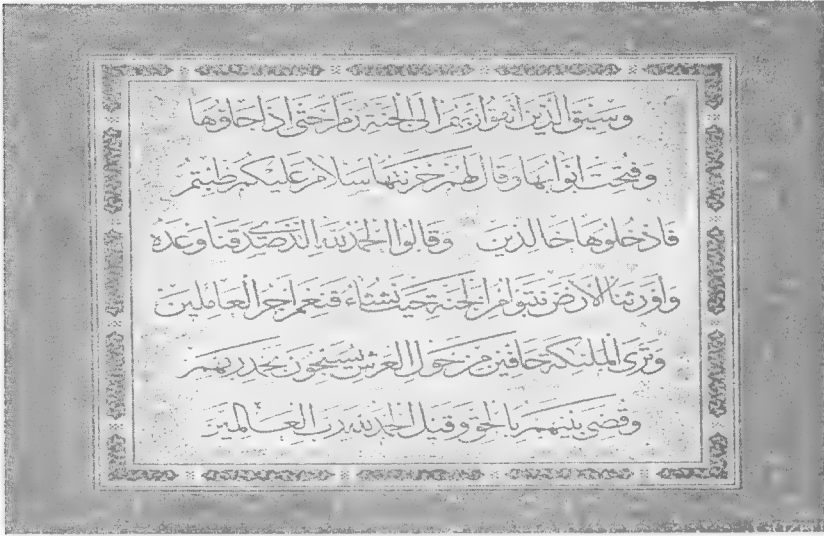 وسيق الذين اتقوا ربهم الى الجنة زمرا حتى اذا جاؤها
وفتحت ابوابها وقال لهم خزنتها سلام عليكم طبتم
فادخلوها خالدين وقالوا الحمد لله الذي صدقنا وعده
واورثنا الارض نتبوا من الجنة حيث نشاء فنعم اجر العاملين
وترى الملئكة حافين من حول العرش يسبحون بحمد ربهم
وقضى بينهم بالحق وقيل الحمد لله رب العالمين